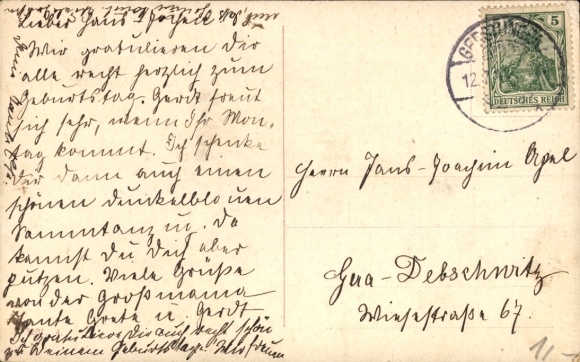 Lieber Hans-Joachim
Wir gratulieren Dir
alle recht herzlich zum
Geburtstag. Gerdt freut
sich sehr, wenn Ihr Mon-
tag kommt. Ich schenke
Dir dann auch einen
schönen dunkelblauen
Da
kannst Du Dich aber
putzen. Viele Grüße
von der Großmama
Tante Grete u. Gerdt
Ich gratuliere Dir auch recht schön
zu Deinem Geburtstage. Wir freuen
5
DEUTSCHES REICH
12.
Herrn Hans-Joachim Apel
Gera-Debschwitz
Wiesestraße 67.
1/-